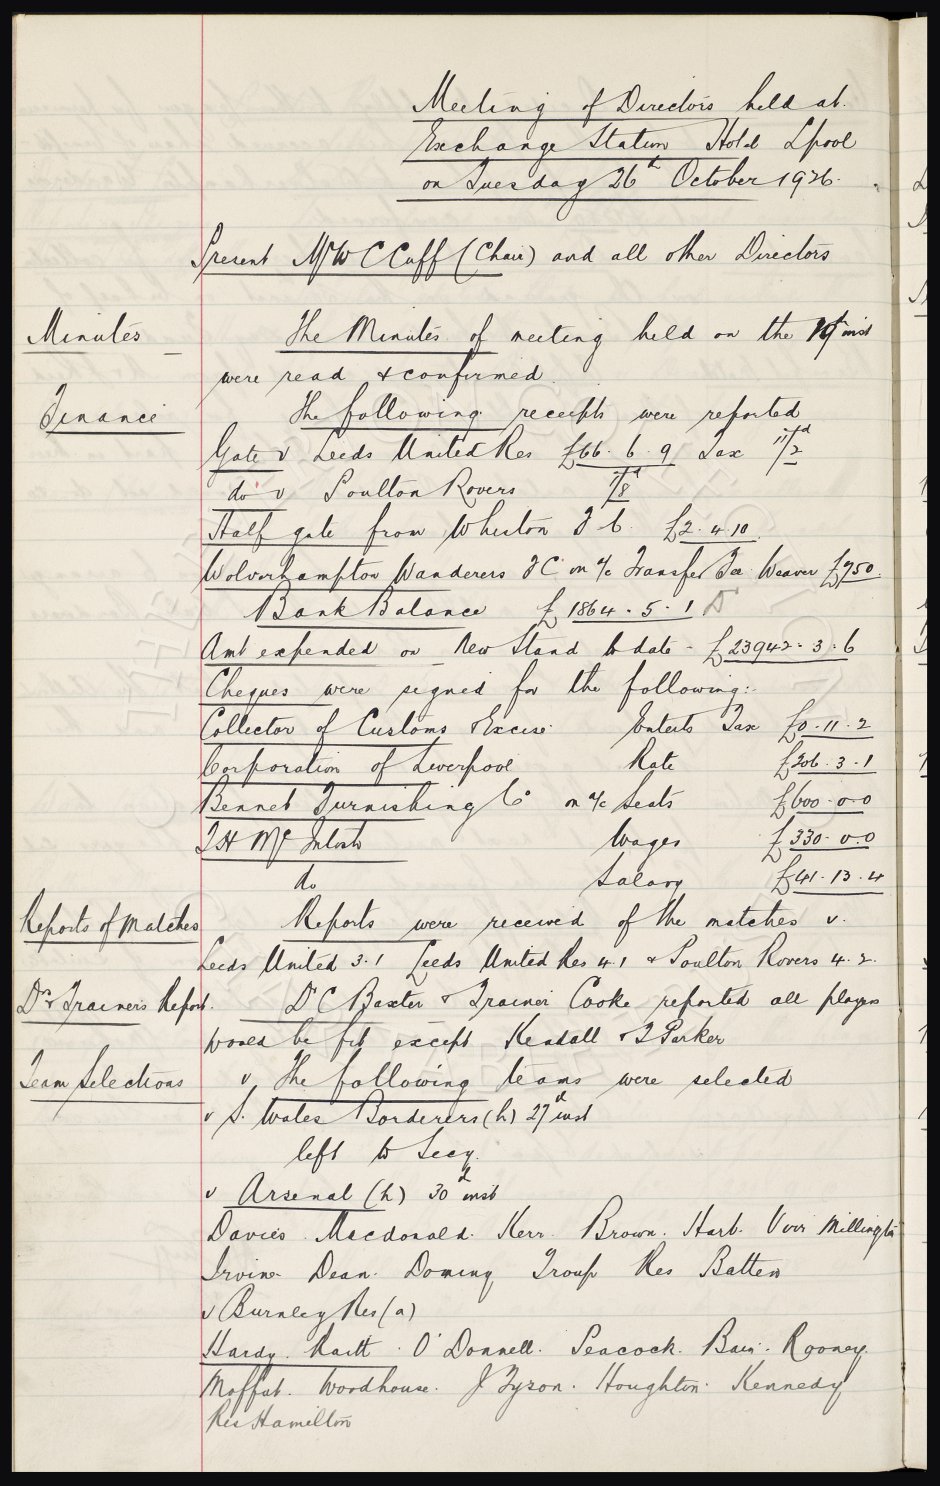 Meeting of Directors held at.
Exchange Station Hotel Lpool
on Tuesday 26th October 1926.
Present Mr W C Cuff (Chair) and all other Directors
Minutes
The Minutes of meeting held on the 19th inst
were read & confirmed
Finance
The following receipts were reported
Gate v Leeds United Res £66. 6. 9 Tax 11/2d
do v Poulton Rovers 7/8d
Half gate from Whiston F C. £2. 4. 10
Wolverhampton Wanderers F C on a/c Transfer Fee Weaver £750
Bank Balance £1864. 5. 1
Amt expended on New Stand to date - £23942. 3. 6
Cheques were signed for the following:-
Collector of Customs & Excise Enterts Tax £0. 11. 2
Corporation of Liverpool Rate £206. 3. 1
Bennet Furnishing Co on a/c Seats £600. 0. 0
T H McIntosh Wages £330. 0. 0
do Salary £41. 13. 4
Reports of Matches
Reports were received of the matches v.
Leeds United 3.1 Leeds United Res 4.1 & Poulton Rovers 4.2.
Dr & Trainers Report.
Dr C Baxter & Trainer Cooke reported all players
would be fit except Kendall & F Parker
Team Selections
v The following teams were selected
v S. Wales Borderers (h) 27th inst
left to Secy.
v Arsenal (h) 30th inst
Davies. Macdonald. Kerr. Brown. Hart. Virr Millington
Irvine Dean. Dominy Troup Res Batten
v Burnley Res (a)
Hardy. Raitt. O'Donnell. Peacock. Bain. Rooney.
Moffat. Woodhouse. J Tyson. Houghton. Kennedy
Res Hamilton